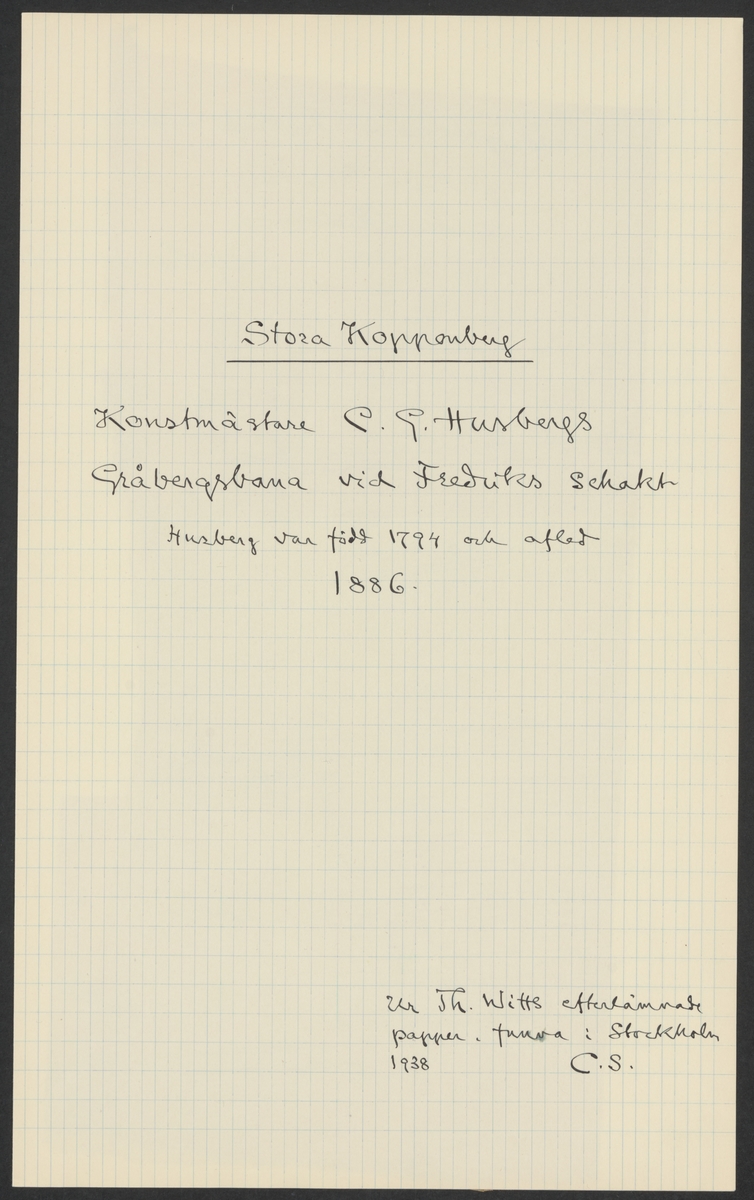 Stora Kopparberg
Konstmästare C. G. Husbergs
Gråbergsbana vid Fredriks Schakt
Husberg var född 1794 och afled
1886.
Ur Th. Witts efterlämnade
papper. funna i Stockholm
1938 C.S.